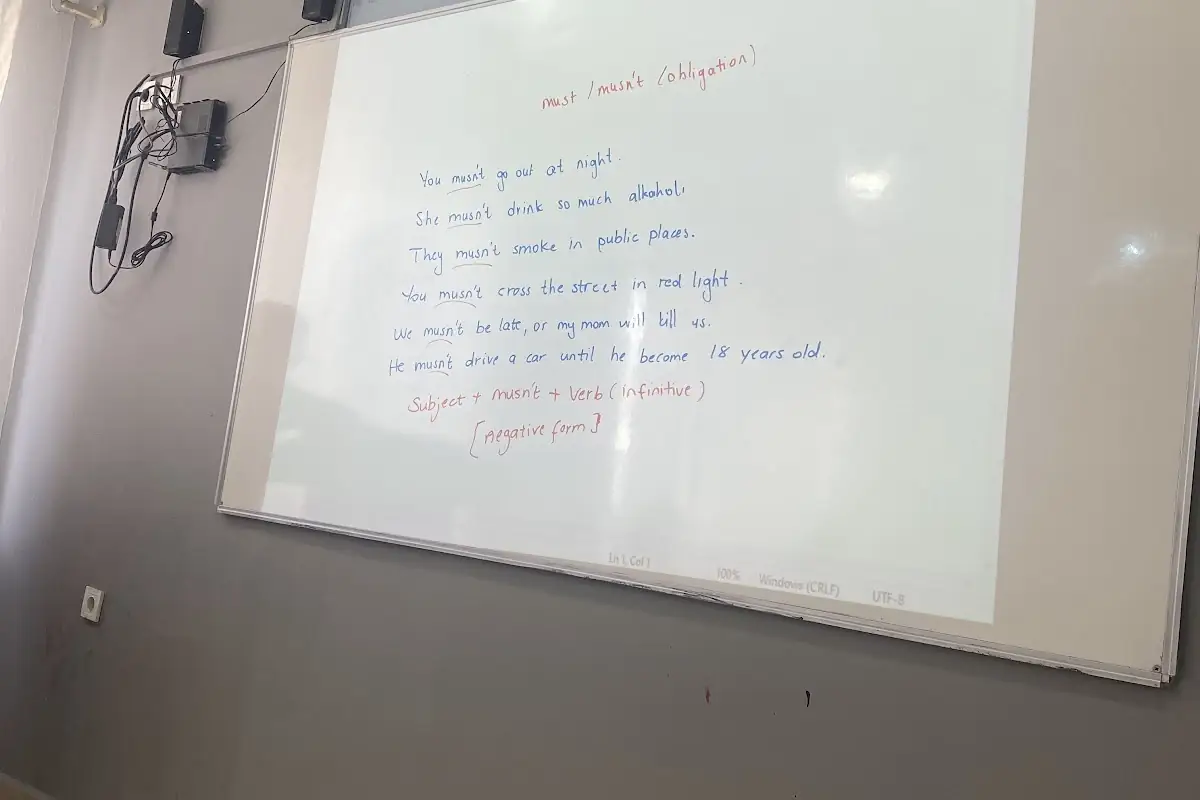 must / musn't (obligation)
You musn't go out at night.
She musn't drink so much alkohol.
They musn't smoke in public places.
You musn't cross the street in red light.
We musn't be late, or my mom will kill us.
He musn't drive a car until he become 18 years old.
Subject + musn't + Verb (infinitive)
[negative form]
Ln 1, Col 1 100% Windows (CRLF) UTF-8